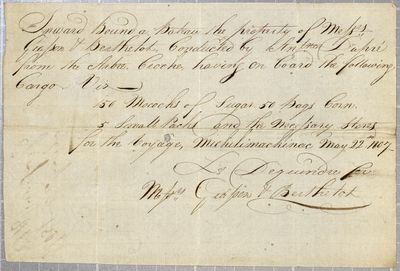 Inward Bound a Bateau the property of Messrs
Giasson & Berthelot, Conducted by Dupré
from the having on board the following
Cargo Viz
150 Mococks of Sugar 50 bags Corn
5 Small Packs and the Necessary Stores
for the Voyage, Michilimackinac May 22d 1807
Ls Dequindre for
Messrs Giasson & Berthelot